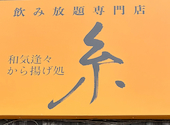 飲み放題専門店
和気逢々
から揚げ処
糸